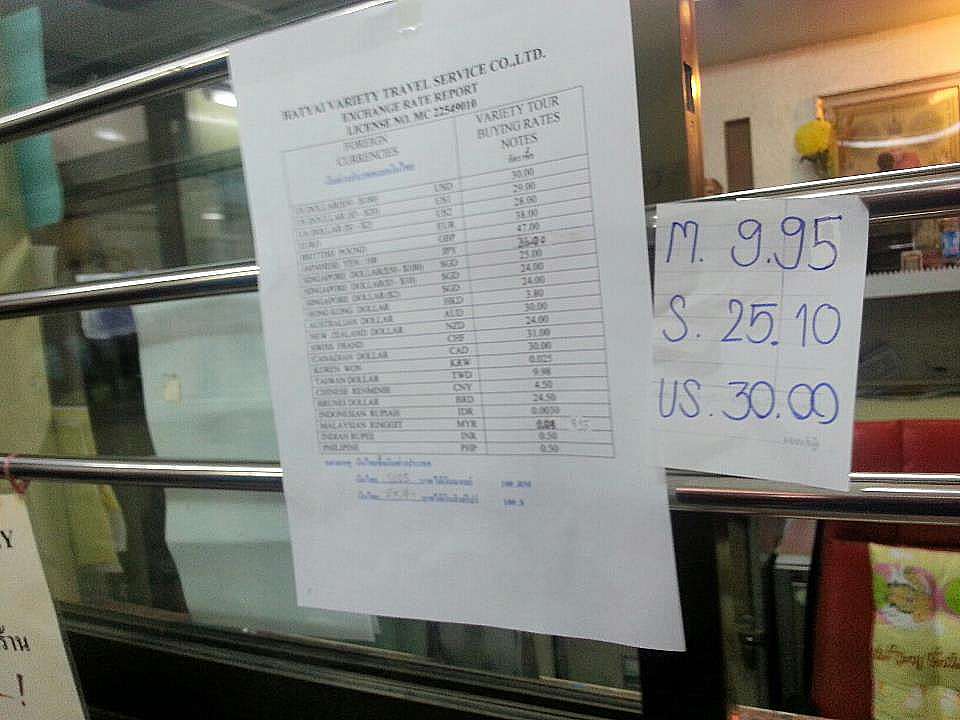 HATYAI VARIETY TRAVEL SERVICE CO.,LTD.
EXCHANGE RATE REPORT
LICENSE NO. MC 22549010
FOREIGN CURRENCIES
VARIETY TOUR BUYING RATES NOTES
USD 30.00
US1 29.00
US2 28.00
EURO EUR 38.00
BRITISH POUND GBP 47.00
JAPANESE YEN : 100 JPY
SINGAPORE DOLLAR SGD 25.00
SINGAPORE DOLLAR SGD 24.00
SINGAPORE DOLLAR ($2) SGD 24.00
HONG KONG DOLLAR HKD 3.80
AUSTRALIAN DOLLAR AUD 30.00
NEW ZEALAND DOLLAR NZD 24.00
SWISS FRANC CHF 31.00
CANADIAN DOLLAR CAD 30.00
KOREN WON KRW 0.025
TAIWAN DOLLAR TWD
CHINESE RENMINBI CNY 4.50
BRUNEI DOLLAR BRD 24.50
INDONESIAN RUPIAH IDR 0.0030
MALAYSIAN RINGGIT MYR
INDIAN RUPEE INR 0.50
PHILIPINE PHP 0.50
100 RM
100 S
M. 9.95
S. 25.10
US. 30.00
Y
ร้าน
!